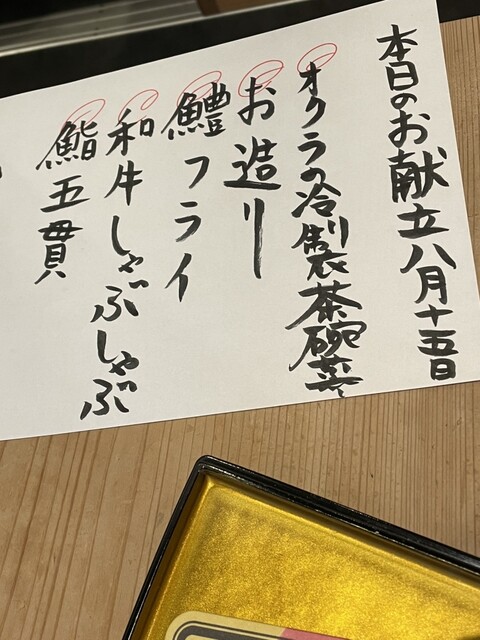 本日のお献立八月十五日
オクラの冷製茶碗蒸
お造り
鱧フライ
和牛しゃぶしゃぶ
鮨五貫